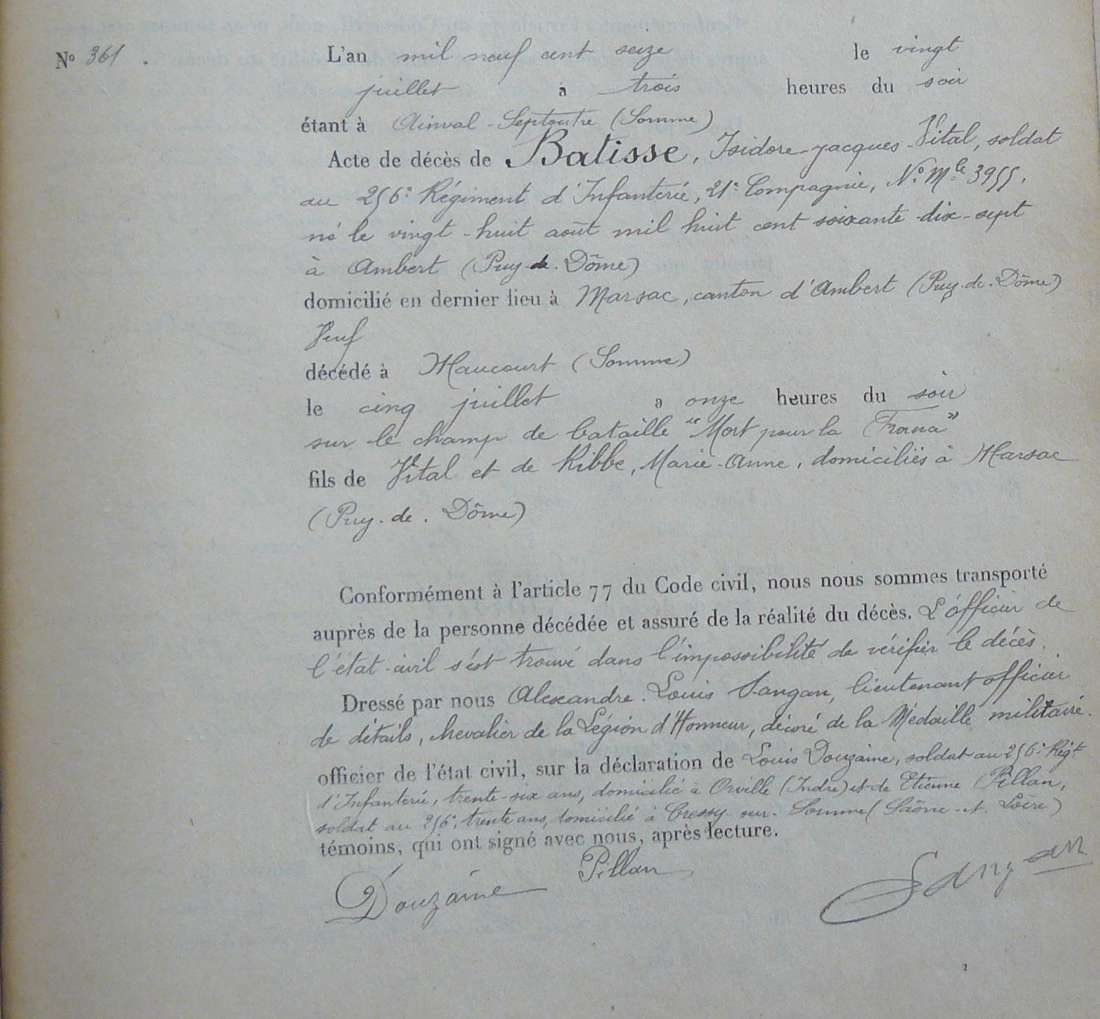 N° 361.
L'an mil neuf cent seize le vingt
juillet à trois heures du soir
étant à Ainval-Septoutre (Somme)
Acte de décès de Batisse, Isidore-Jacques-Vital, soldat
au 256e Régiment d'Infanterie, 21e Compagnie, No Mle 3955,
né le vingt-huit août mil huit cent soixante-dix-sept
à Ambert (Puy-de-Dôme)
domicilié en dernier lieu à Marsac, canton d'Ambert (Puy-de-Dôme)
Veuf
décédé à Maucourt (Somme)
le cinq juillet à onze heures du soir
sur le champ de bataille "Mort pour la France"
fils de Vital et de Ribbe, Marie-Anne, domiciliés à Marsac
(Puy-de-Dôme)
Conformément à l'article 77 du Code civil, nous nous sommes transporté
auprès de la personne décédée et assuré de la réalité du décès. L'officier de
l'état-civil s'est trouvé dans l'impossibilité de vérifier le décès.
Dressé par nous Alexandre-Louis Sangan, lieutenant officier
de détails, chevalier de la Légion d'Honneur, décoré de la Médaille militaire.
officier de l'état civil, sur la déclaration de Louis Douzaine, soldat au 256e Régt
d'Infanterie, trente-six ans, domicilié à Orville (Indre) et de Etienne Pillan,
soldat au 256e, trente ans, domicilié à Cressy-sur-Somme (Saône-et-Loire)
témoins, qui ont signé avec nous, après lecture.
Douzaine Pillan Sangan